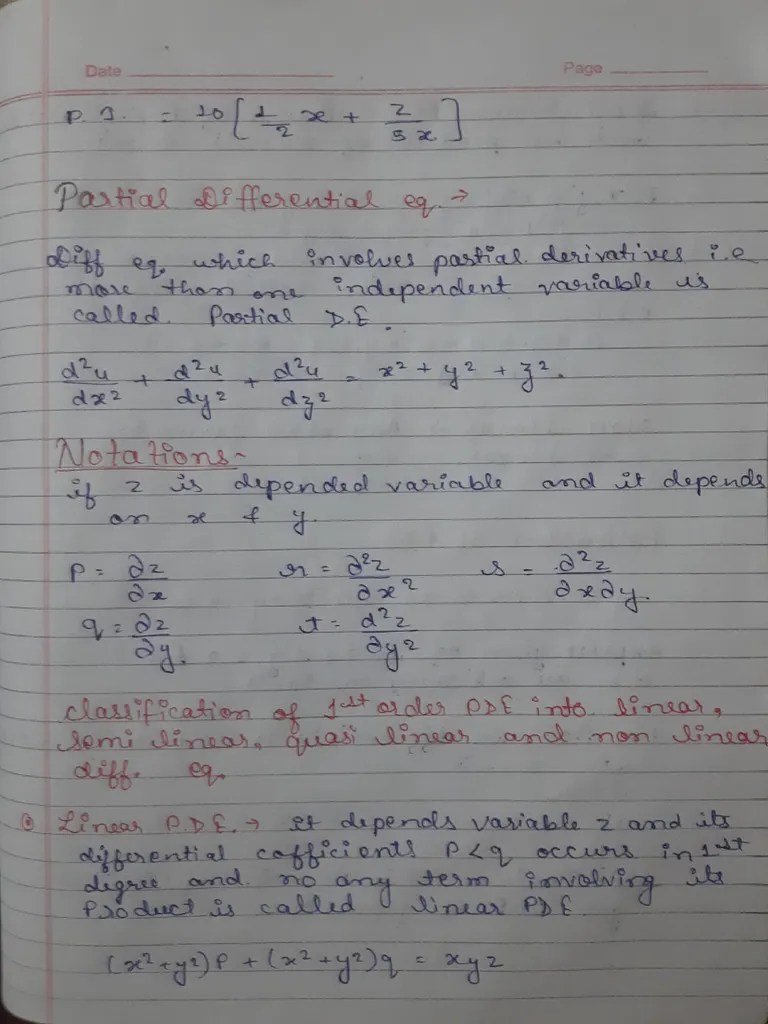 Date
Page
P.I. = 10[1/2 x + 2/5x]
Partial Differential eq. →
Diff eq. which involves partial derivatives i.e
more than one independent variable is
called Partial D.E.
d²u/dx² + d²u/dy² + d²u/dz² = x² + y² + z².
Notations-
if z is depended variable and it depends
on x & y.
P = ∂z/∂x r = ∂²z/∂x² s = ∂²z/∂x∂y.
q = ∂z/∂y. t = d²z/∂y²
Classification of 1st order PDE into linear,
semi linear, quasi linear and non linear
diff. eq.
Linear P.D.E. → it depends variable z and its
differential cofficients P & q occurs in 1st
degree and no any term involving its
Product is called linear PDE.
(x²+y²)P + (x²+y²)q = xyz